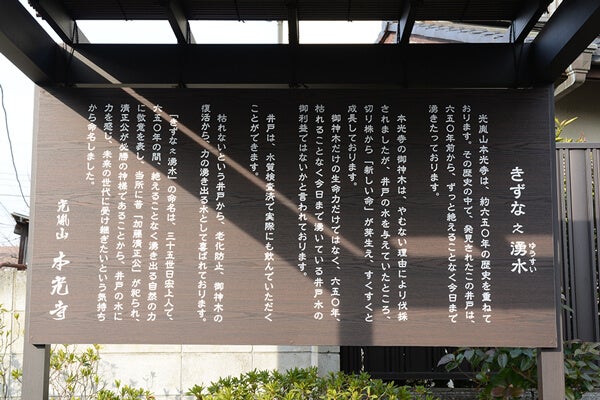 きずな之湧水
ゆうすい
光嵐山本光寺は、約六五〇年の歴史を重ねて
おります。その歴史の中で、発見されたこの井戸は、
六五〇年前から、ずっと絶えることなく今日まで
湧きたっております。
本光寺の御神木は、やむない理由により伐採
されましたが、井戸の水を与えていたところ、
切り株から「新しい命」が芽生え、すくすくと
成長しております。
御神木だけの生命力だけではなく、六五〇年、
枯れることなく今日まで湧いている井戸水の
御利益ではないかと言われております。
井戸は、水質検査済で実際にも飲んでいただく
ことができます。
枯れないという井戸から、老化防止、御神木の
復活から、力の湧き出る水として喜ばれております。
「きずな之湧水」の命名は、三十五世日宏上人で、
六五〇年の間、絶えることなく湧き出る自然の力
に敬意を表し、当所に昔「加藤清正公」が祀られ、
清正公が必勝の神様であることから、井戸の水に
力を感じ、未来の世代に受け継ぎたいという気持ち
から命名しました。
光嵐山 本光寺